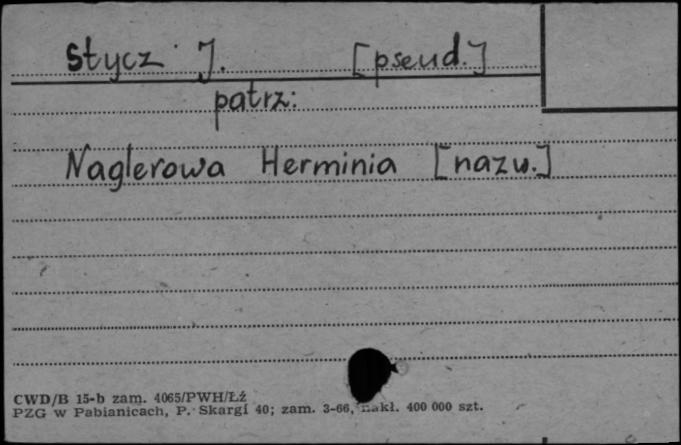 Stycz J. [pseud.]
patrz:
Naglerowa Herminia [nazw.]
CWD/B 15-b zam. 4065/PWH/Łź
PZG w Pabianicach, P. Skargi 40; zam. 3-66, nakł. 400 000 szt.